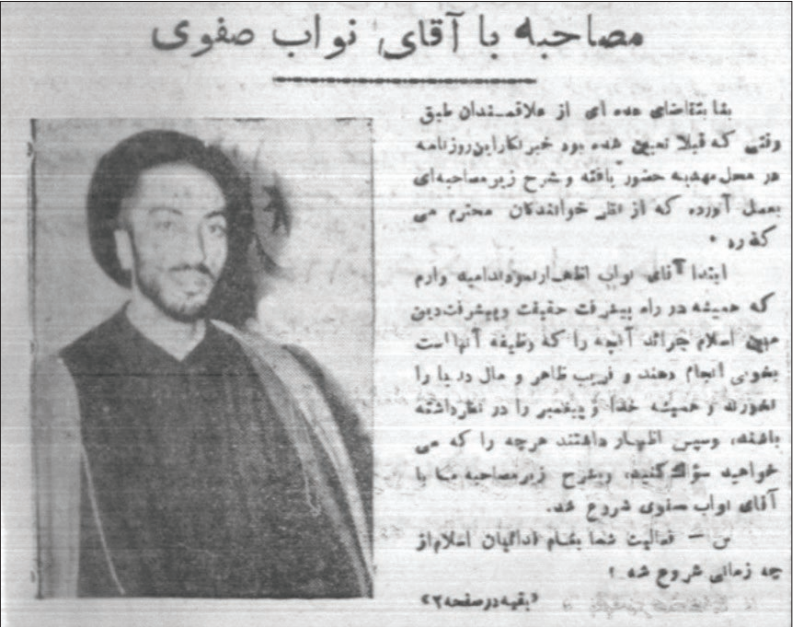 مصاحبه با آقای نواب صفوی
بنا بتقاضای عده ای از علاقمندان طبق
وقتی که قبلا تعیین شده بود خبرنگار این روزنامه
در محل مهدیه حضور یافته و شرح زیر مصاحبه‌ای
بعمل آورده که از نظر خوانندگان محترم می
گذرد .
ابتدا آقای نواب اظهار نمودند امید وارم
که همیشه در راه پیشرفت حقیقت و پیشرفت دین
مبین اسلام جرائد آنچه را که وظیفه آنها است
بخوبی انجام دهند و فریب ظاهر و مال دنیا را
نخورند و همیشه خدا و پیغمبر را در نظر داشته
باشند، وسپس اظهار داشتند هرچه را که می
خواهید سؤال کنید، وبشرح زیر مصاحبه ما با
آقای نواب صفوی شروع شد.
س – فعالیت شما بنام فدائیان اسلام از
چه زمانی شروع شد ؟
«بقیه در صفحه ۲»